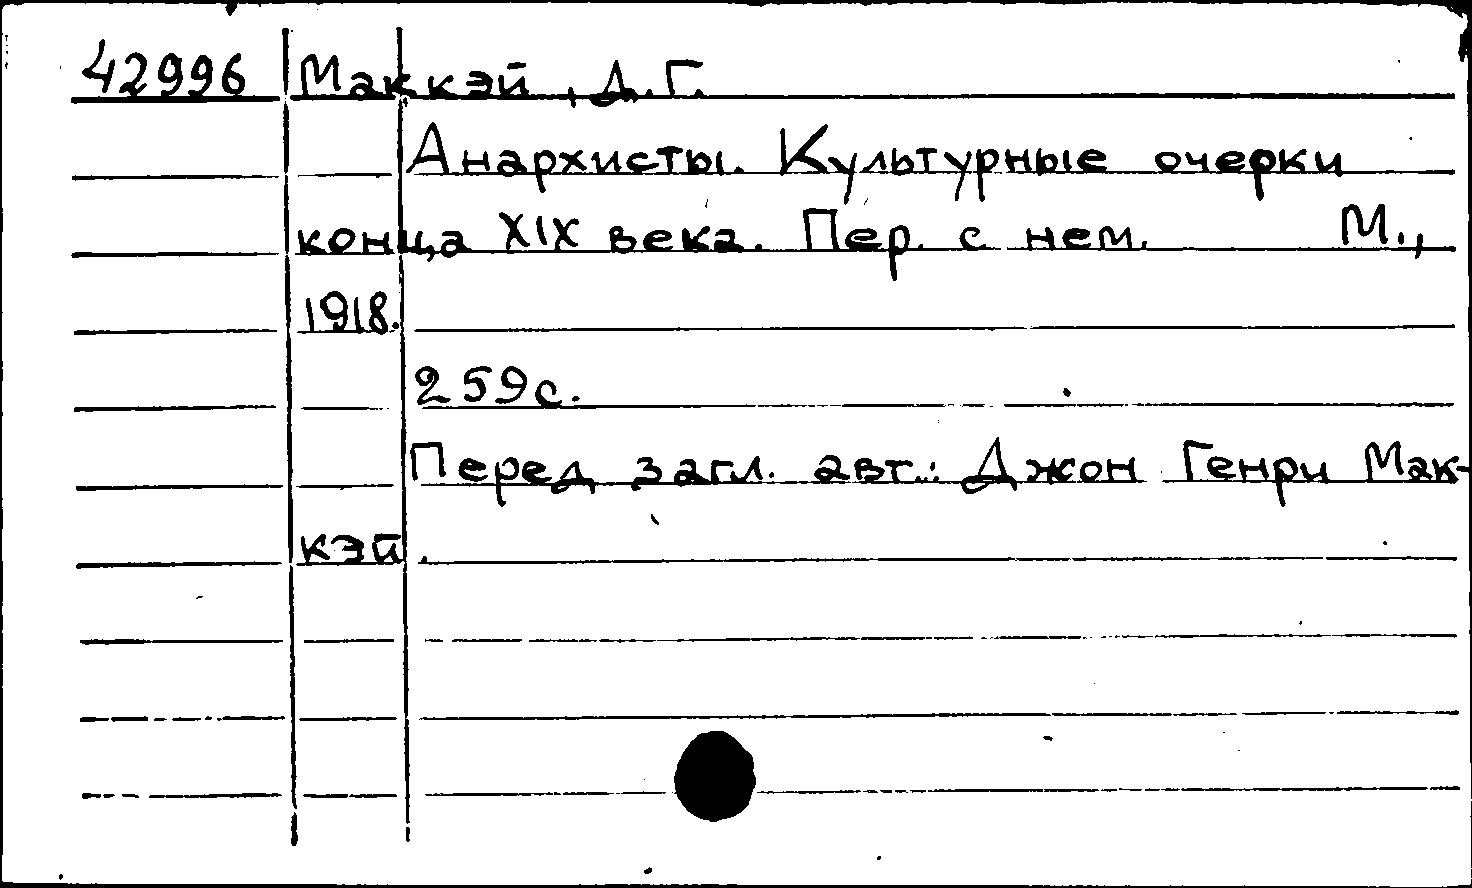 42996 Маккэй, Д.Г.
Анархисты. Культурные очерки
конца XIX века. Пер. с нем. М.,
1918.
259с.
Перед загл. авт.: Джон Генри Мак-
кэй.